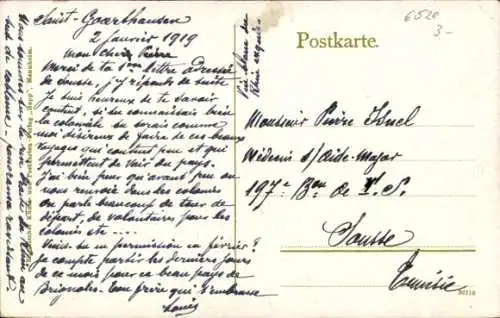 Saint-Goarshausen
2 Janvier 1919
Mon cher Pierre
Merci de ta 1ère lettre adressée
de Sousse, j'y réponds de suite
Je suis heureux de te savoir
content, si tu connaissais bien
la coloniale tu serais comme
moi désireux de faire de ces beaux
voyages qui content peu et qui
permettent de voir du pays.
J'ai bien peur qu'avant peu on
nous renvoie dans les colonies
on parle beaucoup de tour de
départ, de volontaires pour les
colonies etc ---
Viens-tu en permission en février?
Je compte partir les derniers jours
de ce mois pour ce beau pays de
Brignoles. Ton frère qui t'embrasse
Louis
Vous sommes sur le rive droite du Rhin au
panorama ravissant
Mannheim.
Postkarte.
6520
3-
Monsieur Pierre
Médecin s/Aide-Major
197e Bon de T. S.
Sousse
Tunisie